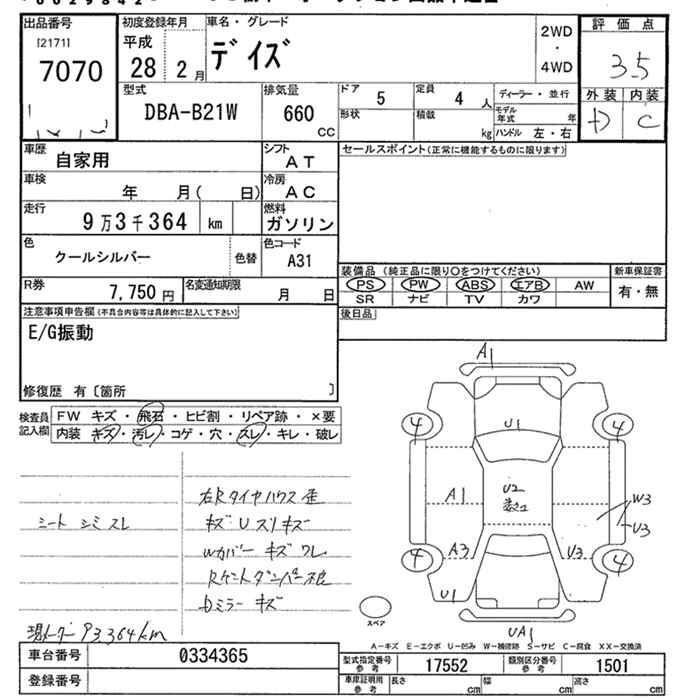 出品番号
[2171]
7070
初度登録年月
平成
28 2月
車名・グレード
デイズ
2WD
・
4WD
評価点
3.5
外装 内装
D C
型式
DBA-B21W
排気量
660
CC
ドア
5
定員
4 人
ディーラー・並行
モデル年式 年
形状
積載
kg
ハンドル 左・右
車歴
自家用
シフト
AT
セールスポイント(正常に機能するものに限ります)
車検
年 月( 日)
冷房
AC
走行
9万3千364 km
燃料
ガソリン
色
クールシルバー
色替
色コード
A31
装備品(純正品に限り○をつけてください)
新車保証書
PS PW ABS エアB AW
有・無
SR ナビ TV カワ
R券
7,750円
名変通知期限
月 日
後日品
注意事項申告欄(不具合内容等は具体的に記入して下さい)
E/G振動
修復歴 有〔箇所 〕
検査員記入欄
FW キズ・飛石・ヒビ割・リペア跡・×要
内装 キズ・汚レ・コゲ・穴・スレ・キレ・破レ
シート シミ スレ
右Rタイヤハウス 歪
キズ U スリキズ
Wカバー キズ ワレ
Rゲートダンパー不良
Dミラー キズ
現メーター 93364km
A1
4
4
U1
A1
U2
W3
U3
A3
U3
4
4
U1
UA1
スペア
A-キズ E-エクボ U-凹み W-補修跡 S-サビ C-腐食 XX-交換済
車台番号
0334365
型式指定番号
参考
17552
類別区分番号
参考
1501
登録番号
車庫証明用
参考
長さ cm
幅 cm
高さ cm